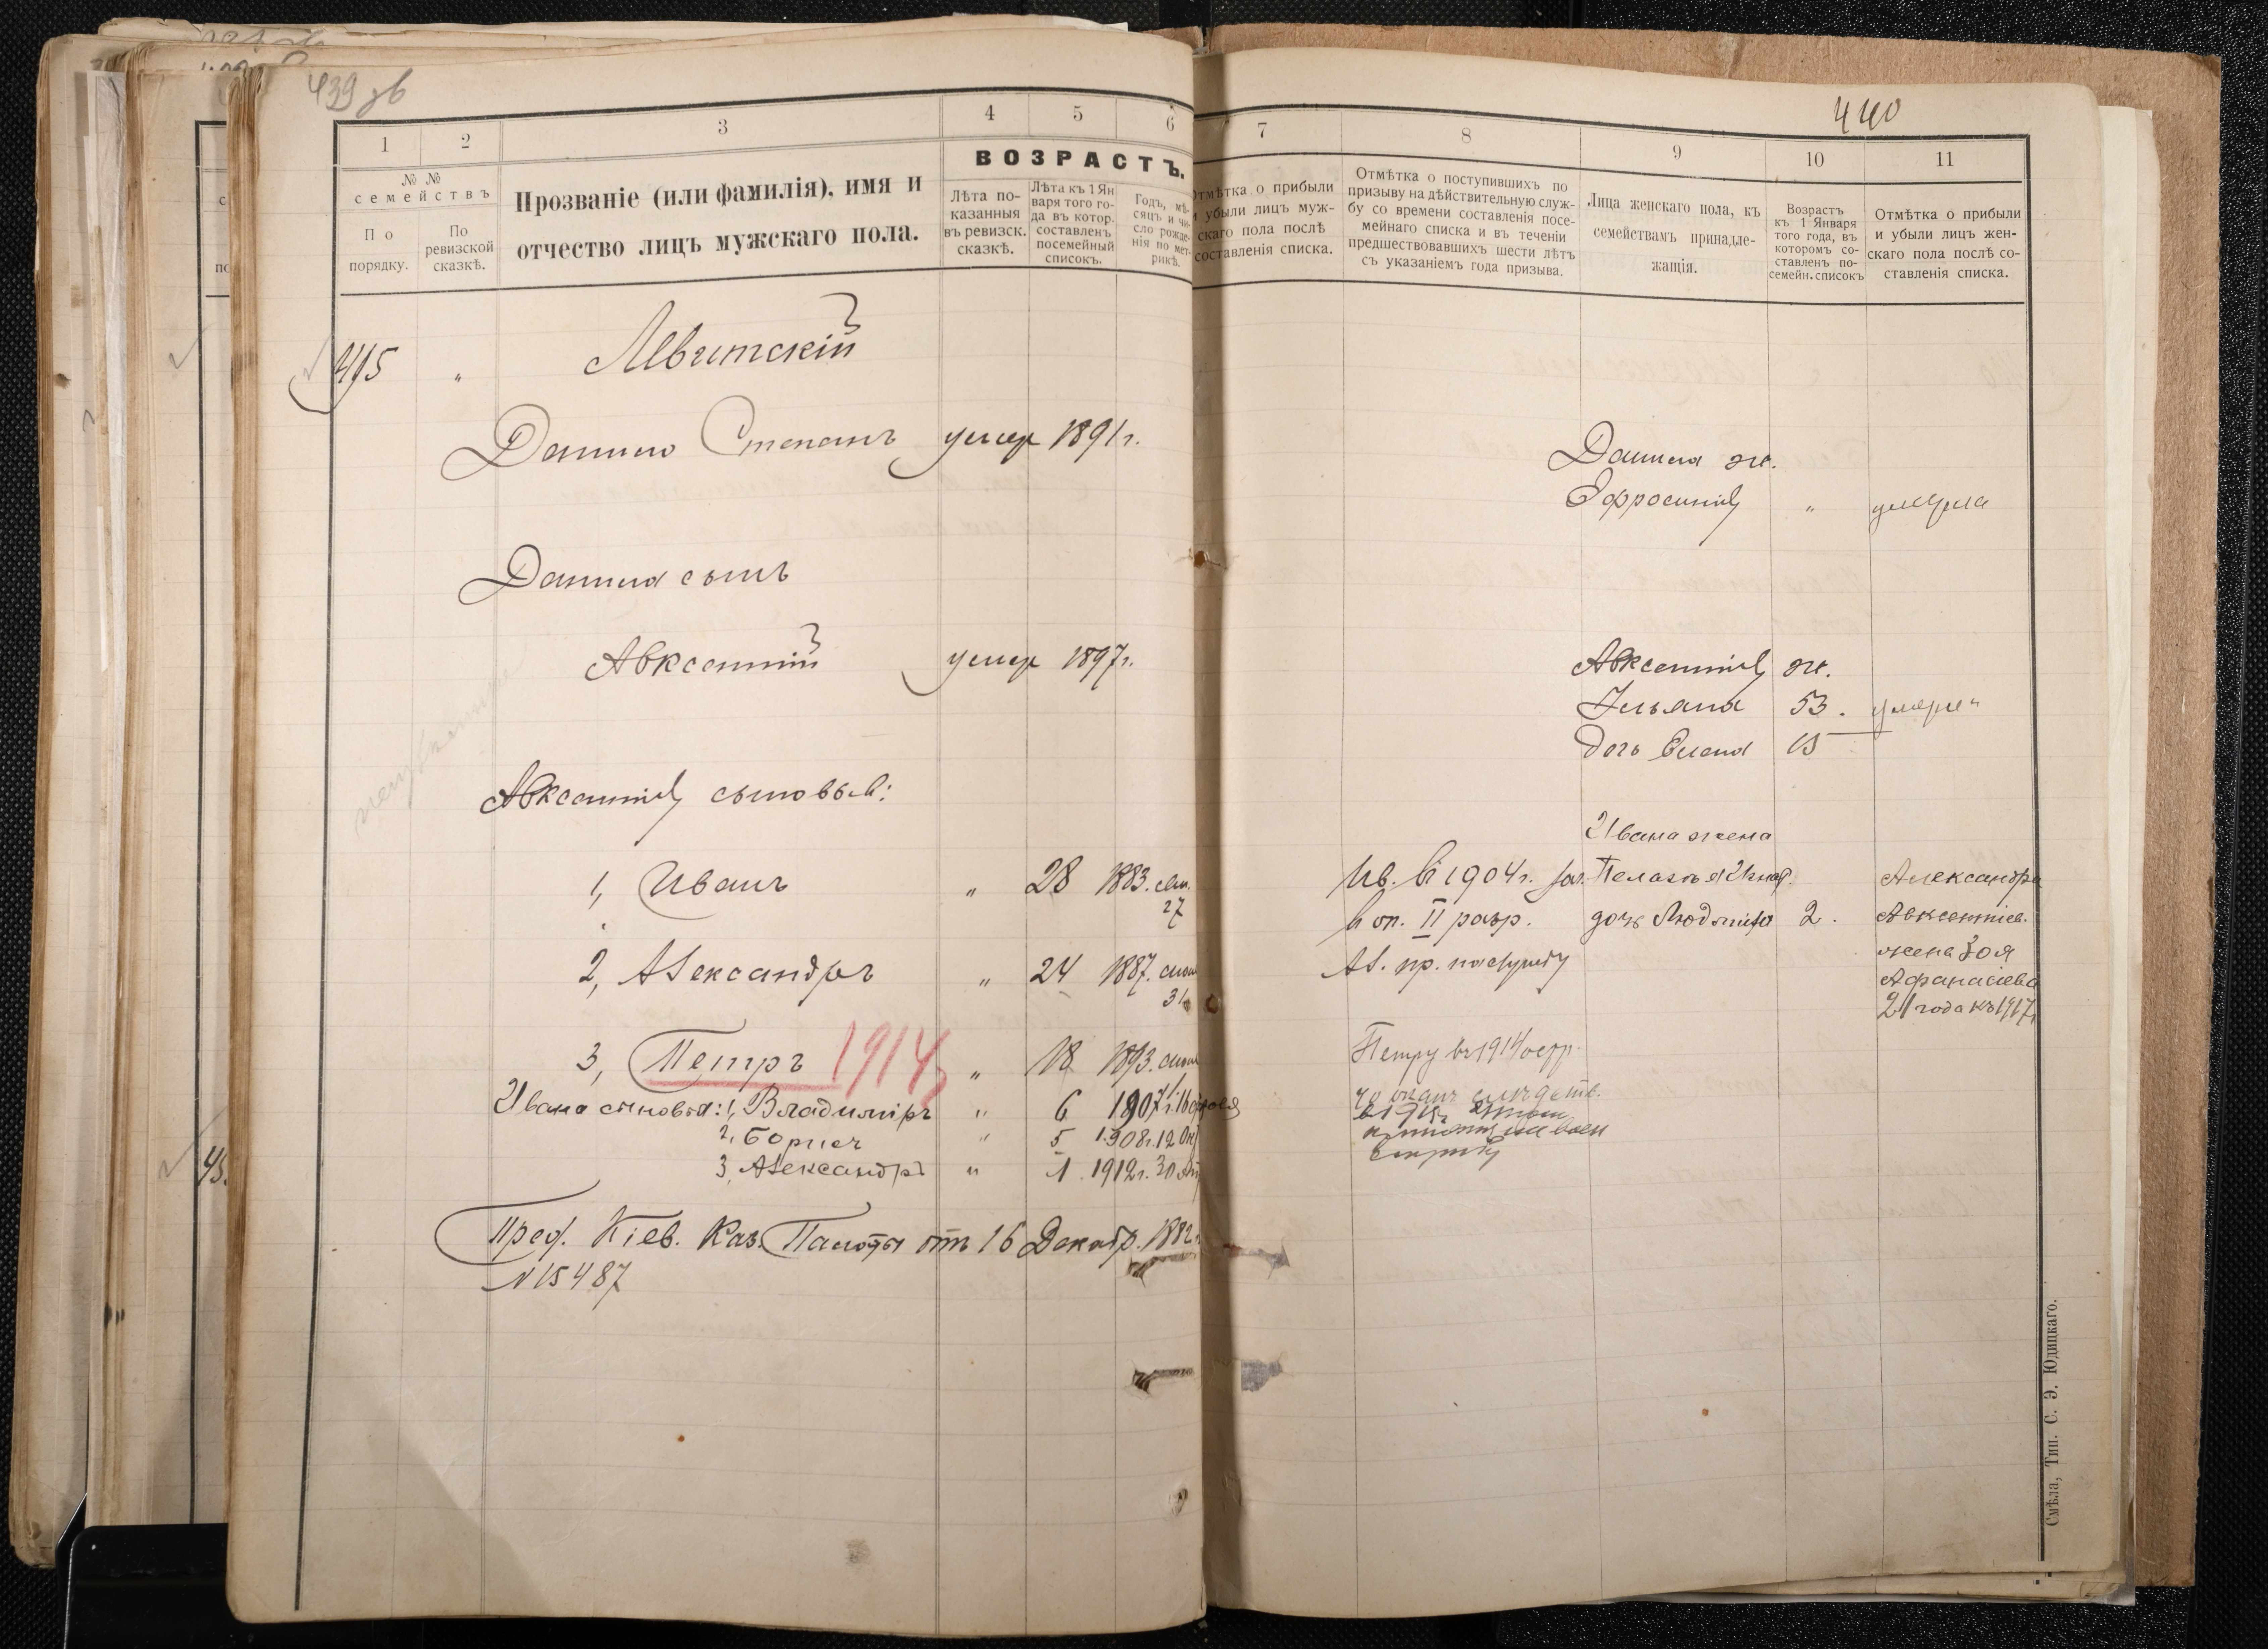 439 зв
1
2
3
4
5
6
№ №
семействъ
По
порядку.
По
ревизской
сказкѣ.
Прозваніе (или фамилія), имя и
отчество лицъ мужскаго пола.
ВОЗРАСТЪ.
Лѣта по-
казанныя
въ ревизск.
сказкѣ.
Лѣта къ 1 Ян
варя того го-
да въ котор.
составленъ
посемейный
списокъ.
Годъ, мѣ-
сяцъ и чи-
сло рожде-
нія по мет-
рикѣ.
415 "
Данило Степанъ умер 1891 г.
Данила сынъ
Авксентій умер 1897 г.
Авксентія сыновья:
1, Иванъ " 28 1883.
27
2, Александръ " 24 1887.
31
3, Петръ 1914 " 18 1893.
Ивана сыновья: 1, Владиміръ " 6 1907 г.
2, Борисъ " 5 1908 г. 12 Окт
3, Александръ " 1. 1912 г. 30
Пред. Кіев. Каз. Палаты отъ 16 Декабр. 1882
№ 15487
440
7
8
9
10
11
Отмѣтка о прибыли
и убыли лицъ муж-
скаго пола послѣ
составленія списка.
Отмѣтка о поступившихъ по
призыву на дѣйствительную служ-
бу со времени составленія посе-
мейнаго списка и въ теченіи
предшествовавшихъ шести лѣтъ
съ указаніемъ года призыва.
Лица женскаго пола, къ
семействамъ принадле-
жащія.
Возрастъ
къ 1 Января
того года, въ
которомъ со-
ставленъ по-
семейн. списокъ
Отмѣтка о прибыли
и убыли лицъ жен-
скаго пола послѣ со-
ставленія списка.
Данила ж.
Ефросинія " умерла
Авксентія ж.
Ульяна 53. умерла
дочь Елена 15
Ивана жена
Ив. въ 1904 г. зач. Пелагея
в оп. II разр. дочь Людмила 2.
Ал. пр. на службу
Александра
Авксентіев.
жена Зоя
Афанасіева
21 года къ 1917 г.
Петру въ 1914
Смѣла, Тип. С. Э. Юдицкаго.